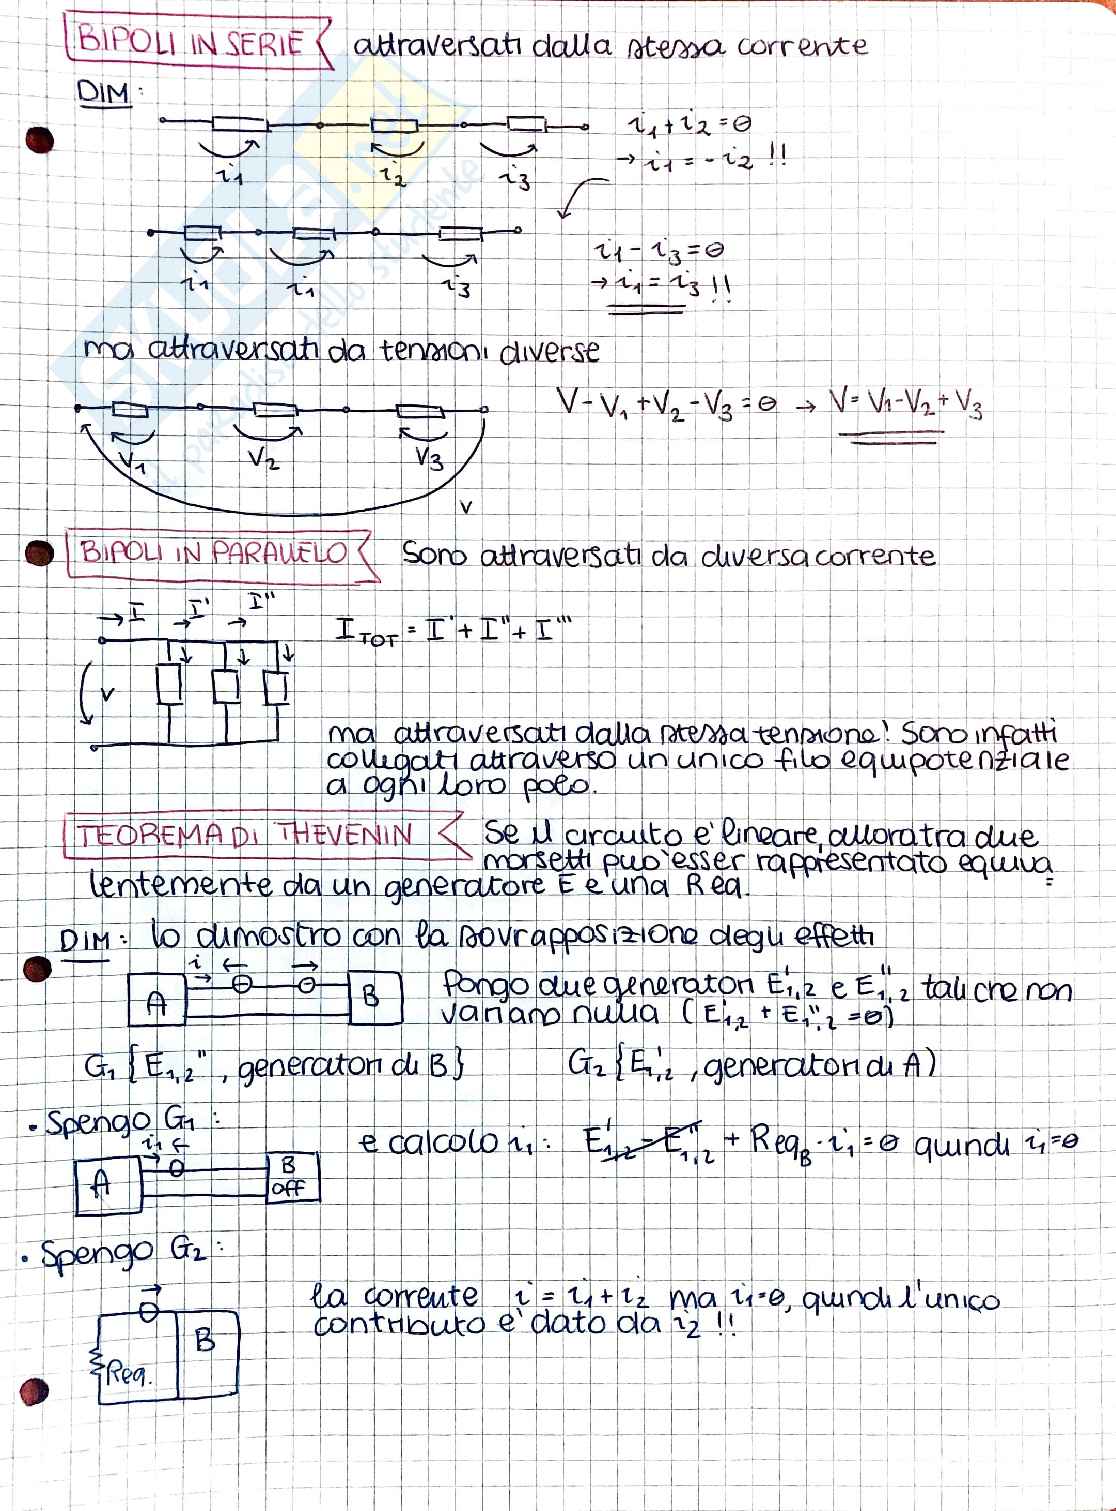 BIPOLI IN SERIE attraversati dalla stessa corrente
DIM:
i1+i2=0
→ i1=-i2 !!
i1 i2 i3
i1-i3=0
→ i1=i3 !!
i1 i1 i3
ma attraversati da tensioni diverse
V-V1+V2-V3=0 → V=V1-V2+V3
V1 V2 V3
V
BIPOLI IN PARALLELO Sono attraversati da diversa corrente
I I' I''
ITOT = I'+I''+I'''
V
ma attraversati dalla stessa tensione! Sono infatti
collegati attraverso un unico filo equipotenziale
a ogni loro polo.
TEOREMA DI THEVENIN Se il circuito e' lineare, allora tra due
morsetti puo' esser rappresentato equiva=
lentemente da un generatore E e una Req.
DIM: lo dimostro con la sovrapposizione degli effetti
i
A B
Pongo due generatori E'1,2 e E''1,2 tali che non
variano nulla (E'1,2 + E''1,2 =0)
G1{E1,2'', generatori di B} G2{E'1,2, generatori di A)
• Spengo G1:
i1
e calcolo i1: E'1,2-E''1,2 + ReqB·i1=0 quindi i1=0
A B
Off
• Spengo G2:
la corrente i=i1+i2 ma i1=0, quindi l'unico
contributo e' dato da i2 !!
B
Req.
SKUOLA.net
il paradiso dello studente